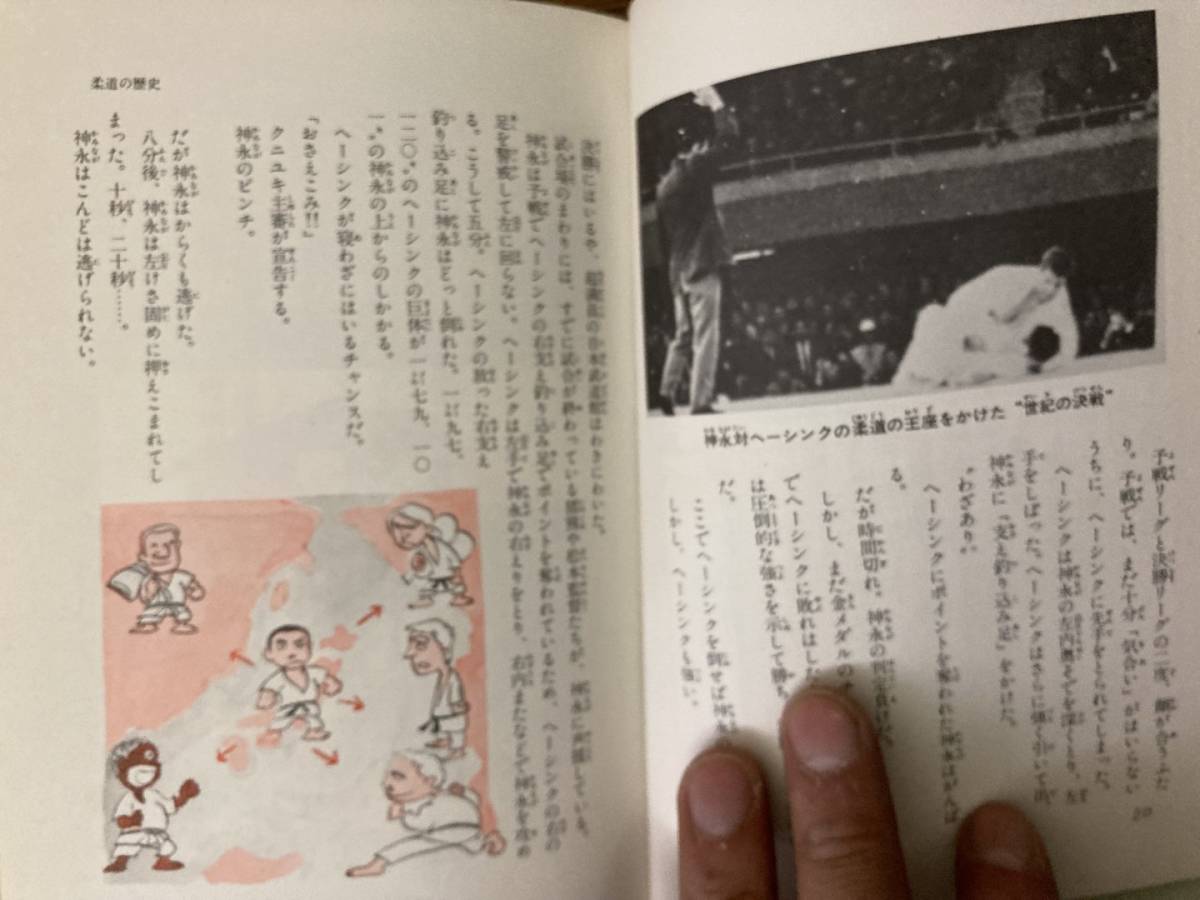 神永対ヘーシンクの柔道の王座をかけた“世紀の決戦”
予戦リーグと決勝リーグの二度、顔が合うふた
り。予戦では、まだ十分「気合い」がはいらない
うちに、ヘーシンクに先手をとられてしまった。
ヘーシンクは神永の左内奥そでを深くとり、左
手をしぼった。ヘーシンクはさらに強く引いて出
神永に「支え釣り込み足」をかけた。
“わざあり”
ヘーシンクにポイントを奪われた神永はがんば
る。
だが時間切れ。神永の判定負けだ。
しかし、まだ金メダルの
でヘーシンクに敗れはした
は圧倒的な強さを示して勝ち
だ。
ここでヘーシンクを倒せば神永
しかし、ヘーシンクも強い。
20
柔道の歴史
決勝にはいるや、超満員の日本武道館はわきにわいた。
試合場のまわりには、すでに試合が終わっている猪熊や松本監督たちが、神永に声援している。
神永は予戦でヘーシンクの右支え釣り込み足でポイントを奪われているため、ヘーシンクの右の
足を警戒して左に回らない。ヘーシンクは左手で神永の右えりをとり、右内またなどで神永を攻め
る。こうして五分。ヘーシンクの放った右支え
釣り込み足に神永はどっと倒れた。一㍍九七、
一二〇㌔のヘーシンクの巨体が一㍍七九、一〇
一㌔の神永の上からのしかかる。
ヘーシンクが寝わざにはいるチャンスだ。
「おさえこみ!!」
クニユキ主審が宣告する。
神永のピンチ。
だが神永はからくも逃げた。
八分後、神永は左けさ固めに押えこまれてし
まった。十秒、二十秒……。
神永はこんどは逃げられない。